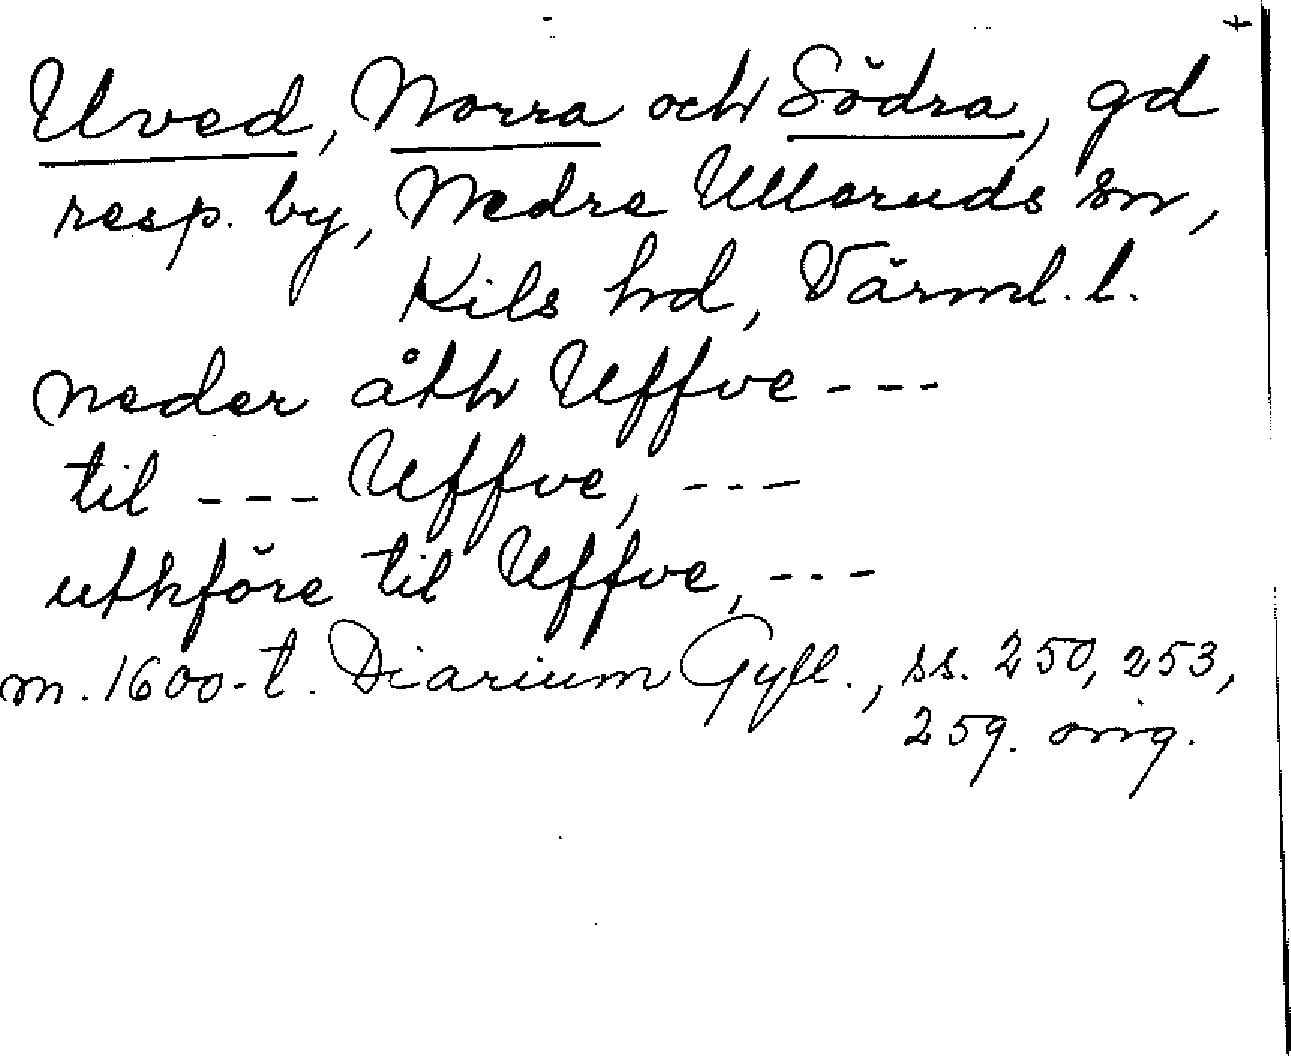 Uved, Norra och Södra, gd
resp. by, Nedre Ulleruds sn,
Kils hd, Värml. l.
neder åth Uffve ---
til --- Uffve, ---
uthföre til Uffve, ---
m. 1600-t. Diarium Gyll., ss. 250, 253,
259. orig.